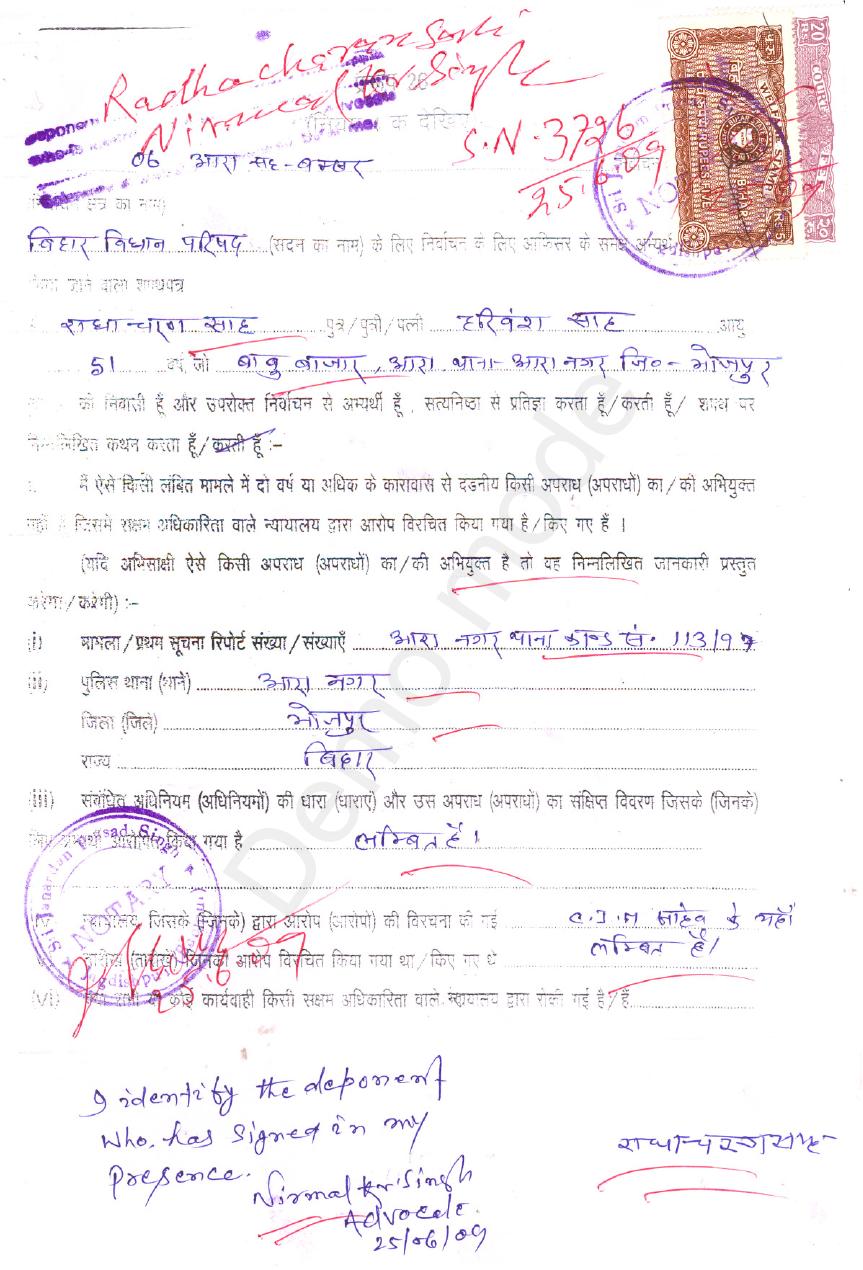 Radhacharan Sah
Nirmal Kr Singh
S.N. 3726
25-6-09
26
06 आरा सह-बक्सर
का नाम)
बिहार विधान परिषद (सदन का नाम) के लिए निर्वाचन के लिए आफिसर के समक्ष अभ्यर्थी
जाने वाला शपथपत्र
राधाचरण साह पुत्र/पुत्री/पत्नी हरिवंश साह आयु
51 वर्ष जो बाबु बाजार, आरा थाना- आरा नगर जि०- भोजपुर
की निवासी हूँ और उपरोक्त निर्वाचन से अभ्यर्थी हूँ , सत्यनिष्ठा से प्रतिज्ञा करता हूँ/करती हूँ/ शपथ पर
निम्नलिखित कथन करता हूँ/करती हूँ :-
मैं ऐसे किसी लंबित मामले में दो वर्ष या अधिक के कारावास से दडनीय किसी अपराध (अपराधों) का/की अभियुक्त
नहीं जिसमे सक्षम अधिकारिता वाले न्यायालय द्वारा आरोप विरचित किया गया है/किए गए हैं ।
(यदि अभिसाक्षी ऐसे किसी अपराध (अपराधों) का/की अभियुक्त है तो वह निम्नलिखित जानकारी प्रस्तुत
करेगा/करेगी) :-
(i) मामला/प्रथम सूचना रिपोर्ट संख्या/संख्याएँ आरा नगर थाना काण्ड सं. 113/97
(ii) पुलिस थाना (थाने) आरा नगर
जिला (जिले) भोजपुर
राज्य बिहार
(iii) संबंधित अधिनियम (अधिनियमों) की धारा (धाराएं) और उस अपराध (अपराधों) का संक्षिप्त विवरण जिसके (जिनके)
लिए आरोपित किया गया है लम्बित है।
न्यायालय जिसके (जिनके) द्वारा आरोप (आरोपों) की विरचना की गई C.J.M साहेब के यहाँ
तारीख (तारीखें) जिनको आरोप विरचित किया गया था/किए गए थे लम्बित है।
(vi) कोई कार्यवाही किसी सक्षम अधिकारिता वाले न्यायालय द्वारा रोकी गई है/हैं
NOTARY
I identify the deponent
who has signed in my
presence.
राधाचरण साह
Nirmal Kr Singh
Advocate
25/06/09
Demo mode